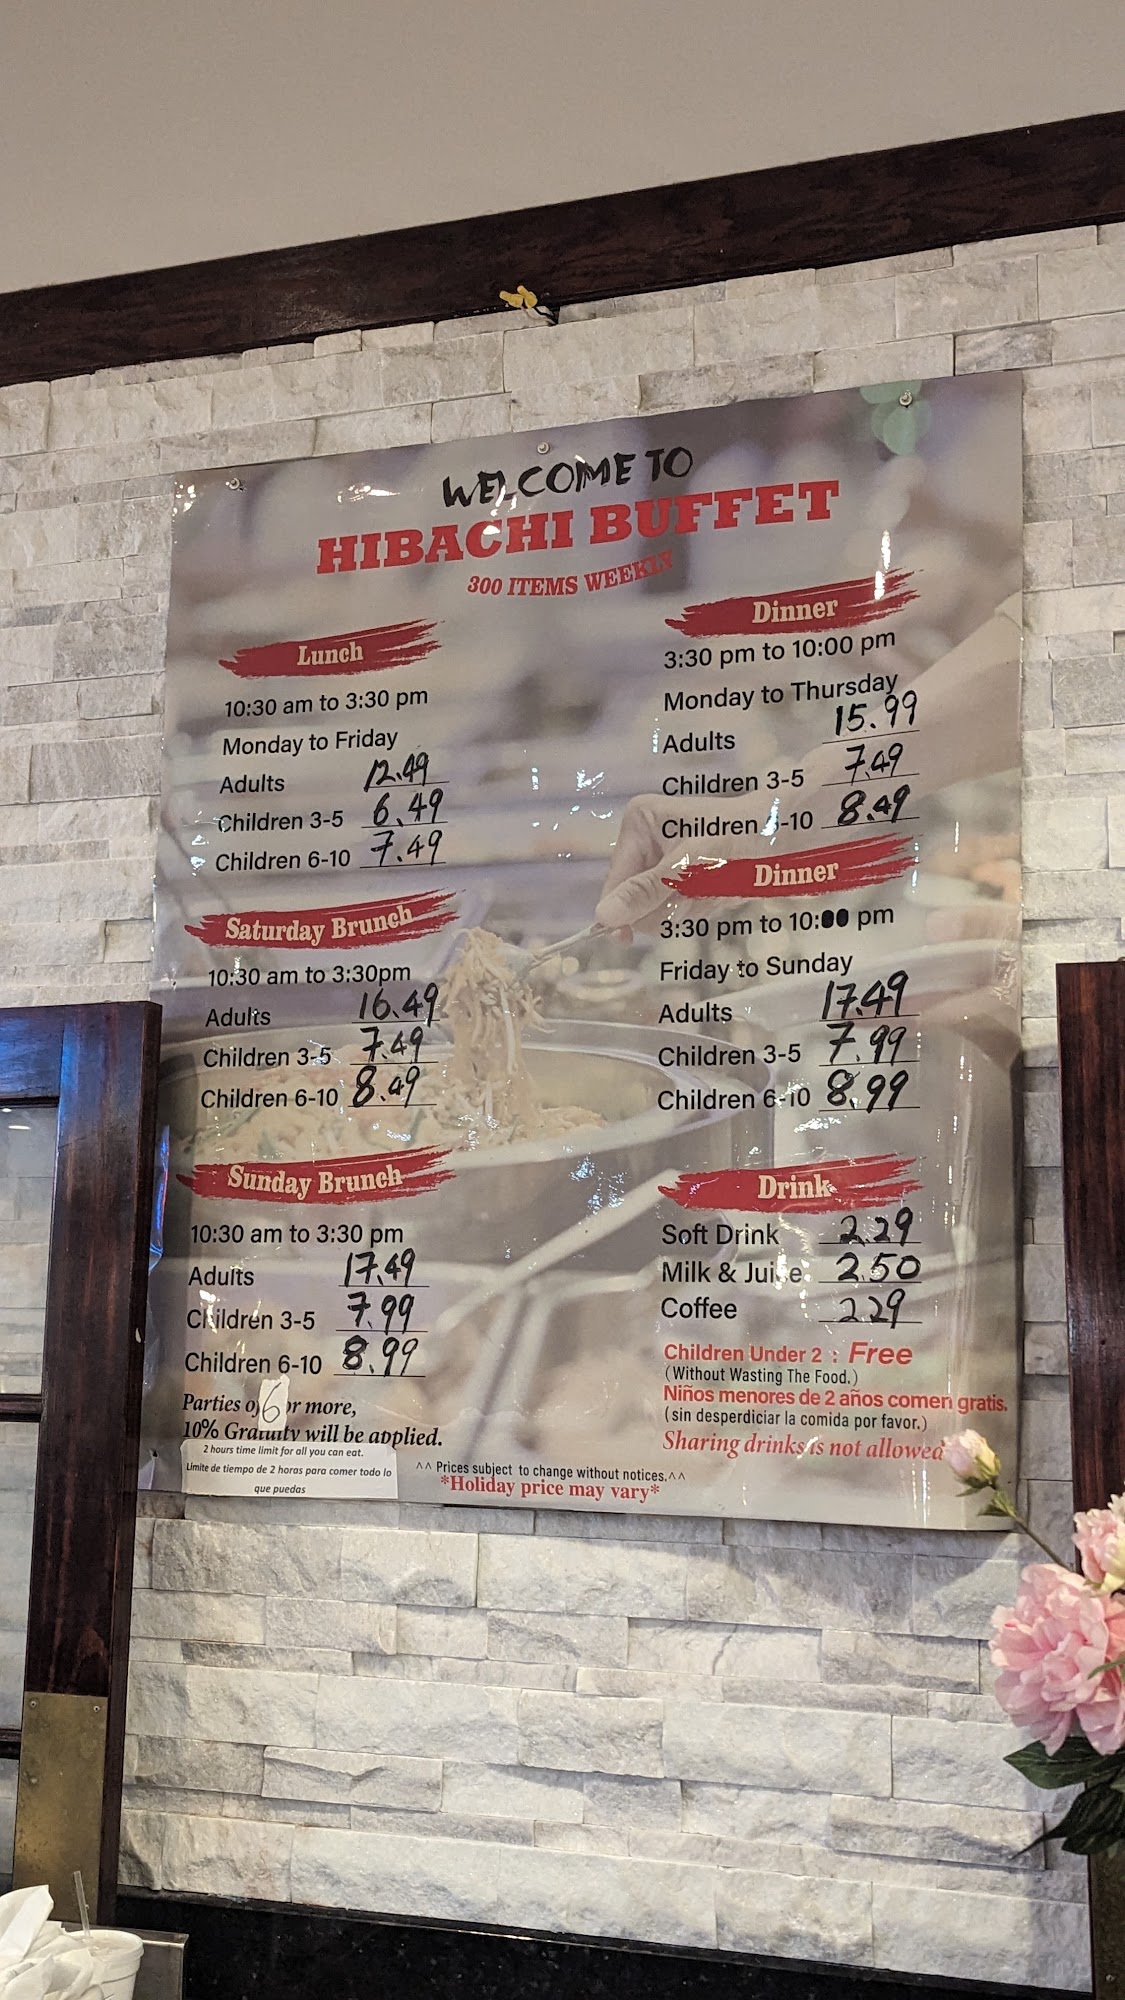 WELCOME TO
HIBACHI BUFFET
300 ITEMS WEEKLY
Lunch
10:30 am to 3:30 pm
Monday to Friday
Adults 12.49
Children 3-5 6.49
Children 6-10 7.49
Saturday Brunch
10:30 am to 3:30pm
Adults 16.49
Children 3-5 7.49
Children 6-10 8.49
Sunday Brunch
10:30 am to 3:30 pm
Adults 17.49
Children 3-5 7.99
Children 6-10 8.99
Parties of 6 or more,
10% Gratuity will be applied.
2 hours time limit for all you can eat.
Limite de tiempo de 2 horas para comer todo lo
que puedas
Dinner
3:30 pm to 10:00 pm
Monday to Thursday
Adults 15.99
Children 3-5 7.49
Children 6-10 8.49
Dinner
3:30 pm to 10:00 pm
Friday to Sunday
Adults 17.49
Children 3-5 7.99
Children 6-10 8.99
Drink
Soft Drink 2.29
Milk & Juice 2.50
Coffee 2.29
Children Under 2 : Free
(Without Wasting The Food.)
Niños menores de 2 años comen gratis.
(sin desperdiciar la comida por favor.)
Sharing drinks is not allowed
^^ Prices subject to change without notices.^^
*Holiday price may vary*